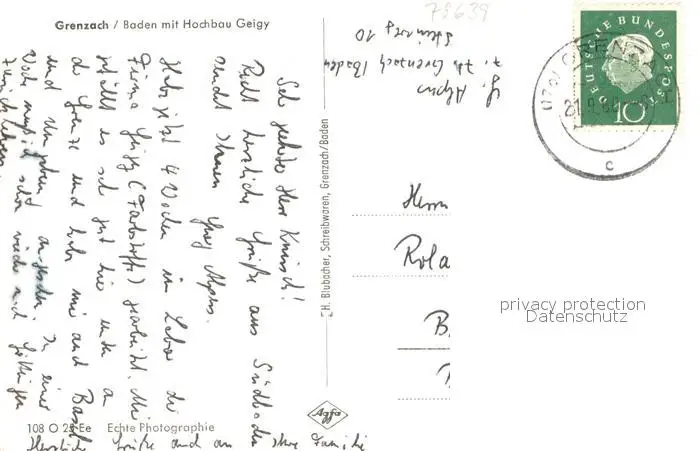 Grenzach / Baden mit Hochbau Geigy
78639
Steinweg 10
z. Zt. Grenzach/Baden
Sehr geehrter Herr Knirsch!
Recht herzliche Grüße aus Südbaden
sendet Ihnen
Habe jetzt 4 Wochen im Labor der
Firma Geigy (Farbstoffe) gearbeitet. Mir
gefällt es sehr gut hier unten an
der Grenze und habe mir auch Basel
und Umgebung angesehen. In einer
Woche muß ich schon wieder nach Göttingen
zurückfahren.
Herzliche Grüße auch an Ihre Familie
H. Blubacher, Schreibwaren, Grenzach/Baden
DEUTSCHE BUNDESPOST
10
GRENZACH
c
Herrn
Rola
B
privacy protection
Datenschutz
Agfa
108 O 25 Ee Echte Photographie